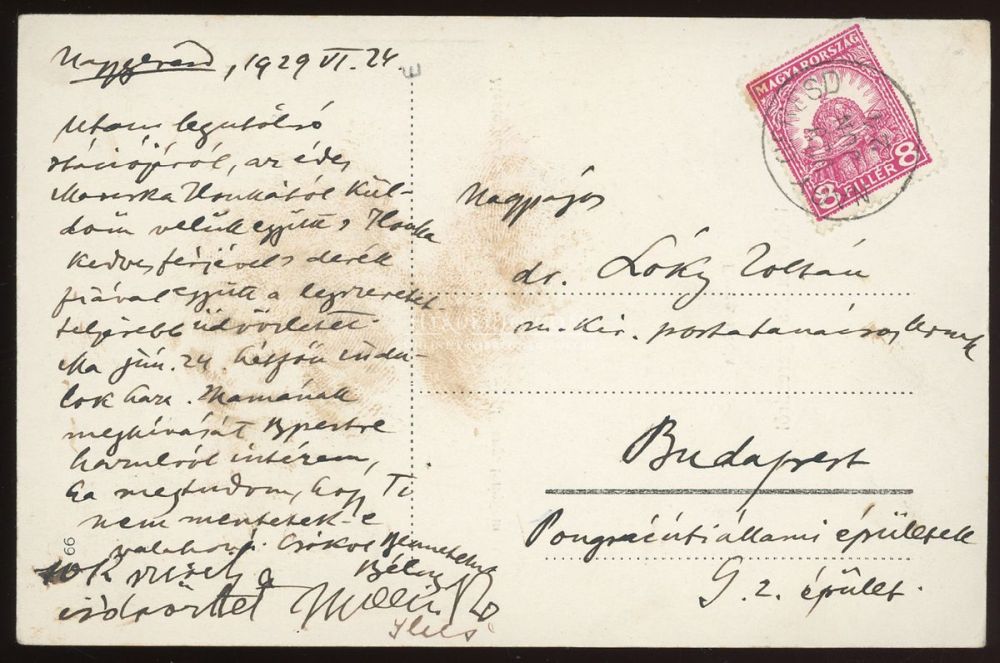 Nagyvárad, 1929 VI. 24.
Utam legutolsó
stációjáról, az édes
Marcska Ilonkától kül-
döm velük együtt s Ilonka
kedves férjével s derék
fiával együtt a legszeretet-
teljesebb üdvözletet.
Ma jún. 24. hétfőn indu-
lok haza. Mamának
meghívását Bpestre
hazulról intézem,
ha megtudom, hogy Ti
nem mentetek-e
valahová. Csókol Benneteket
Béla
üdvözlet
Ilus
66
MAGYARORSZÁG
8 FILLÉR 8
Nagyságos
dr. Lóky Zoltán
m. kir. postatanácsos, Urnak
Budapest
Pongráczúti állami épületek
G. 2. épület.